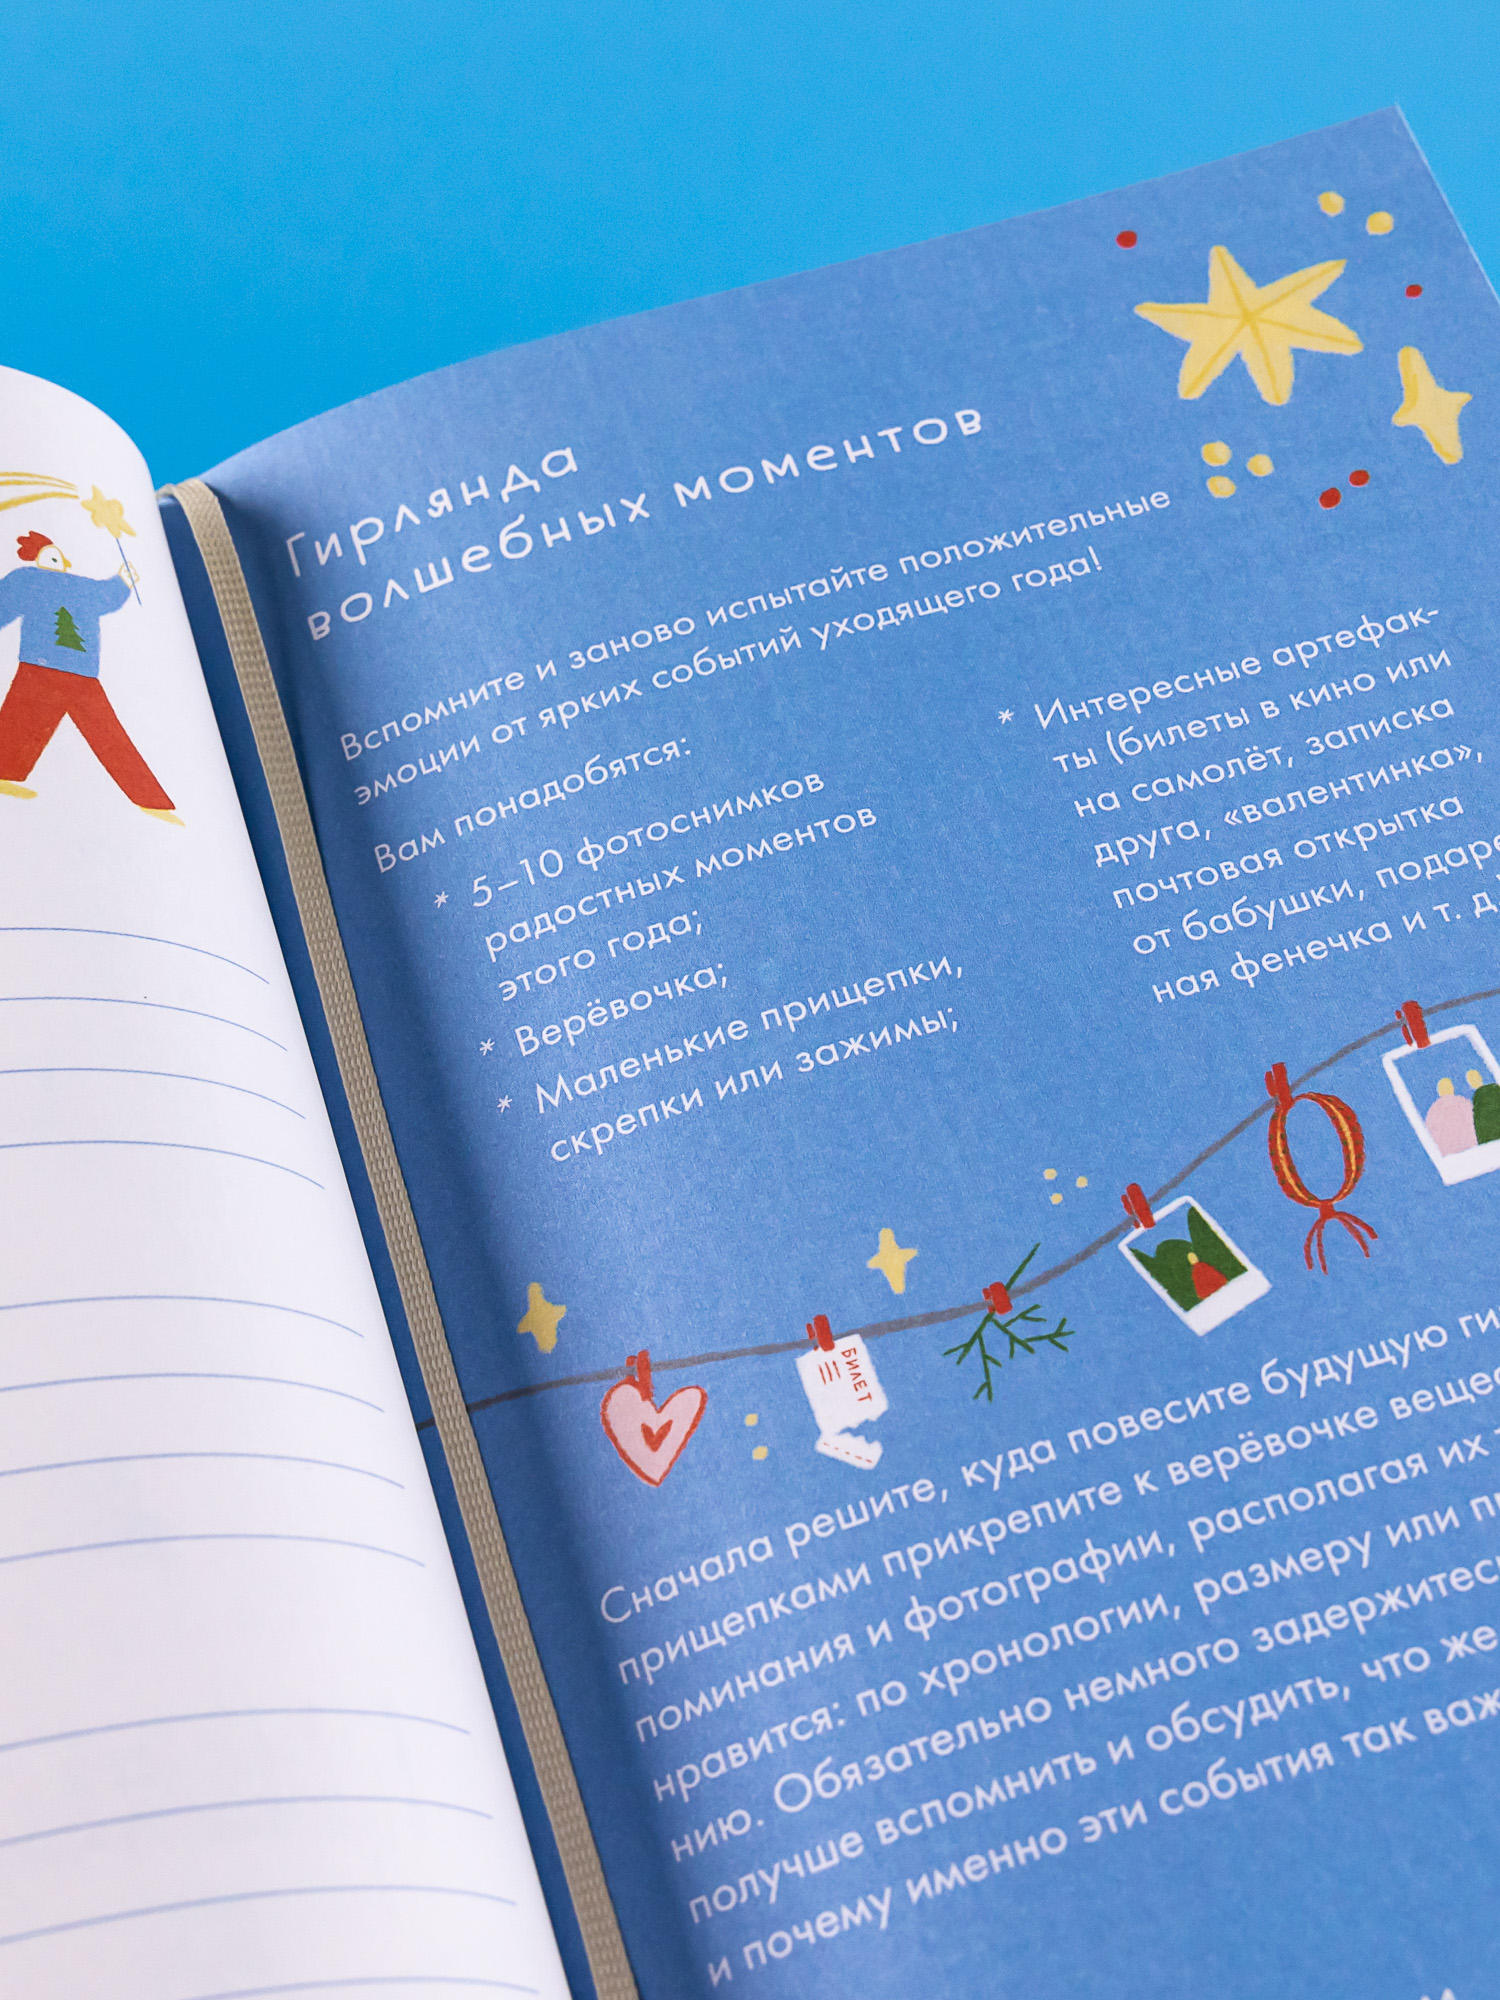 Гирлянда
волшебных моментов
Вспомните и заново испытайте положительные
эмоции от ярких событий уходящего года!
Вам понадобятся:
* 5–10 фотоснимков
радостных моментов
этого года;
* Верёвочка;
* Маленькие прищепки,
скрепки или зажимы;
* Интересные артефак-
ты (билеты в кино или
на самолёт, записка
друга, «валентинка»,
почтовая открытка
от бабушки, подаре
ная фенечка и т. д.
БИЛЕТ
Сначала решите, куда повесите будущую ги
прищепками прикрепите к верёвочке вещес
поминания и фотографии, располагая их
нравится: по хронологии, размеру или
нию. Обязательно немного задержитес
получше вспомнить и обсудить, что же
и почему именно эти события так важ